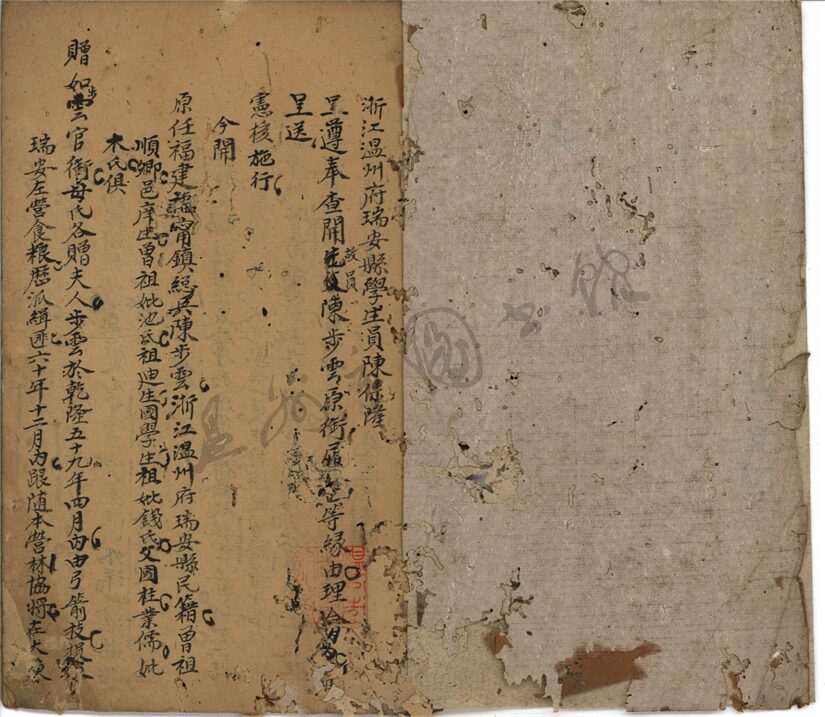 浙江温州府瑞安縣學生員陳保隆
呈遵奉查開故員陳步雲原銜履等緣由理合
呈送
憲核施行
今開
原任福建福寧鎮總兵陳步雲浙江温州府瑞安縣民籍曾祖
順卿邑庠生曾祖妣池氏祖迪生國學生祖妣錢氏父國柱業儒妣
木氏俱
贈如步雲官銜母氏各贈夫人步雲於乾隆五十九年四月内由弓箭技
瑞安左營食粮歴派緝匪六十年十二月内跟随本營林協將在大